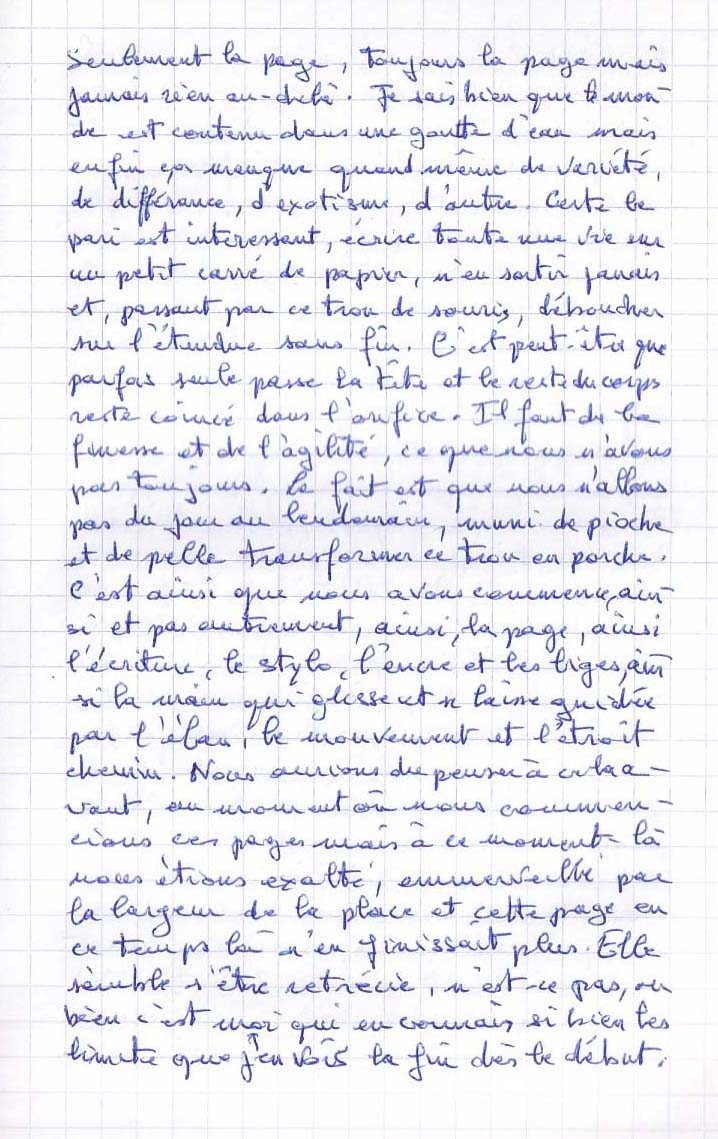 Seulement la page, toujours la page mais
jamais rien au-delà. Je sais bien que le mon-
de est contenu dans une goutte d'eau mais
enfin ça manque quand même de variété,
de différance, d'exotisme, d'autre. Certe le
pari est interessent, écrire toute une vie sur
un petit carré de papier, n'en sortir jamais
et, passant par ce trou de souris, déboucher
sur l'étendue sans fin. C'est peut-être que
parfois seule passe la tête et le reste du corps
reste coincé dans l'orifice. Il faut de la
finesse et de l'agilité, ce que nous n'avons
pas toujours. Le fait est que nous n'allons
pas du jour au lendemain, muni de pioche
et de pelle transformer ce trou en porche.
C'est ainsi que nous avons commencé, ain
si et pas autrement, ainsi, la page, ainsi
l'écriture, le stylo, l'encre et les liges, ain
si la main qui glisse et se laisse guidée
par l'élan, le mouvement et l'étroit
chemin. Nous aurions du penser à cela a-
vant, au moment où nous commen-
cions ces pages mais à ce moment-là
nous étions exalté, emmerveillé par
la largeur de la place et cette page en
ce temps là n'en finissait plus. Elle
semble s'être retrécie, n'est-ce pas, ou
bien c'est moi qui en connais si bien les
limite que j'en vois la fin dès le début.